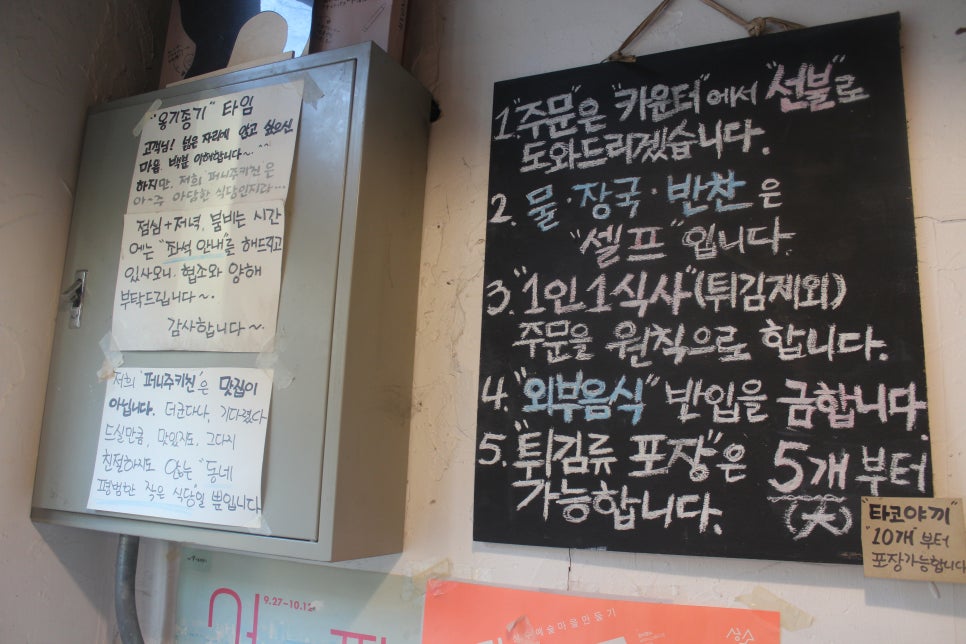 "옹기종기" 타임
고객님! 넓은 자리에 앉고 싶으신
마음. 백분 이해합니다~ ^^
하지만. 저희 '퍼니주키친'은
아~주 아담한 식당인지라...
점심+저녁. 붐비는 시간
에는 "좌석 안내"를 해드리고
있사오니. 협소와 양해
부탁드립니다~.
감사합니다~
저희 '퍼니주키친'은 맛집이
아닙니다. 더군다나, 기다렸다
드실만큼, 맛있지도, 그다지
친절하지도 않는 "동네
평범한 작은 식당"일 뿐입니다
1. "주문"은 "카운터"에서 "선불"로
도와드리겠습니다.
2. 물·장국·반찬은
"셀프"입니다.
3. "1인 1식사"(튀김제외)
주문을 원칙으로 합니다.
4. "외부음식" 반입을 금합니다.
5. "튀김류 포장"은 5개 부터
가능합니다. (大)
"타코야끼"
"10개"부터
포장가능합니다
9.27-10.1
예술마을만들기